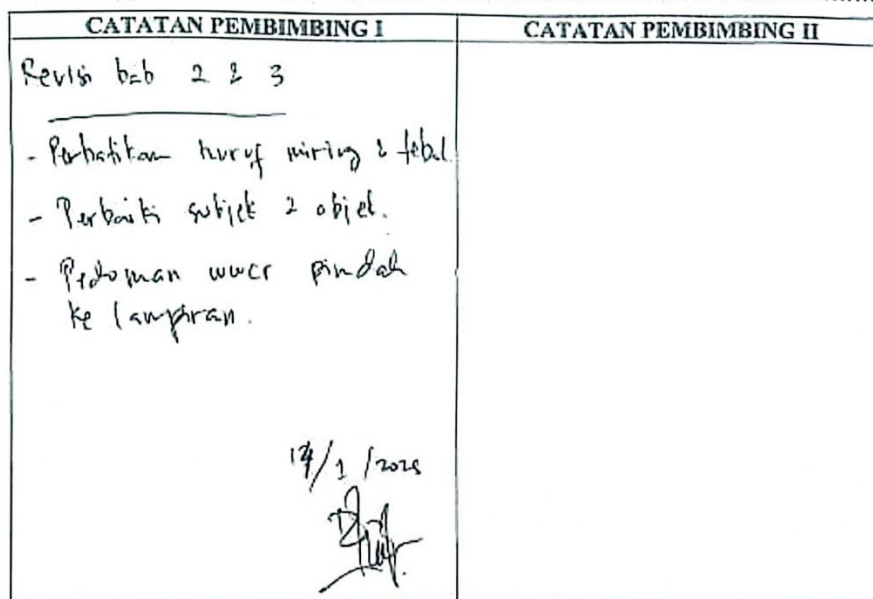 CATATAN PEMBIMBING I
CATATAN PEMBIMBING II
Revisi bab 2 & 3
- Perhatikan huruf miring & tebal
- Perbaiki subjek & objek.
- Pedoman wwcr pindah
ke lampiran.
/1/2025